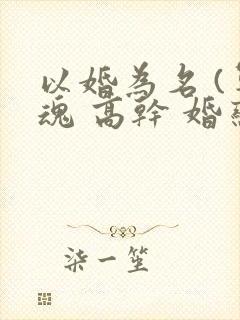 以婚為名(
魂 高幹 婚
柒一笙